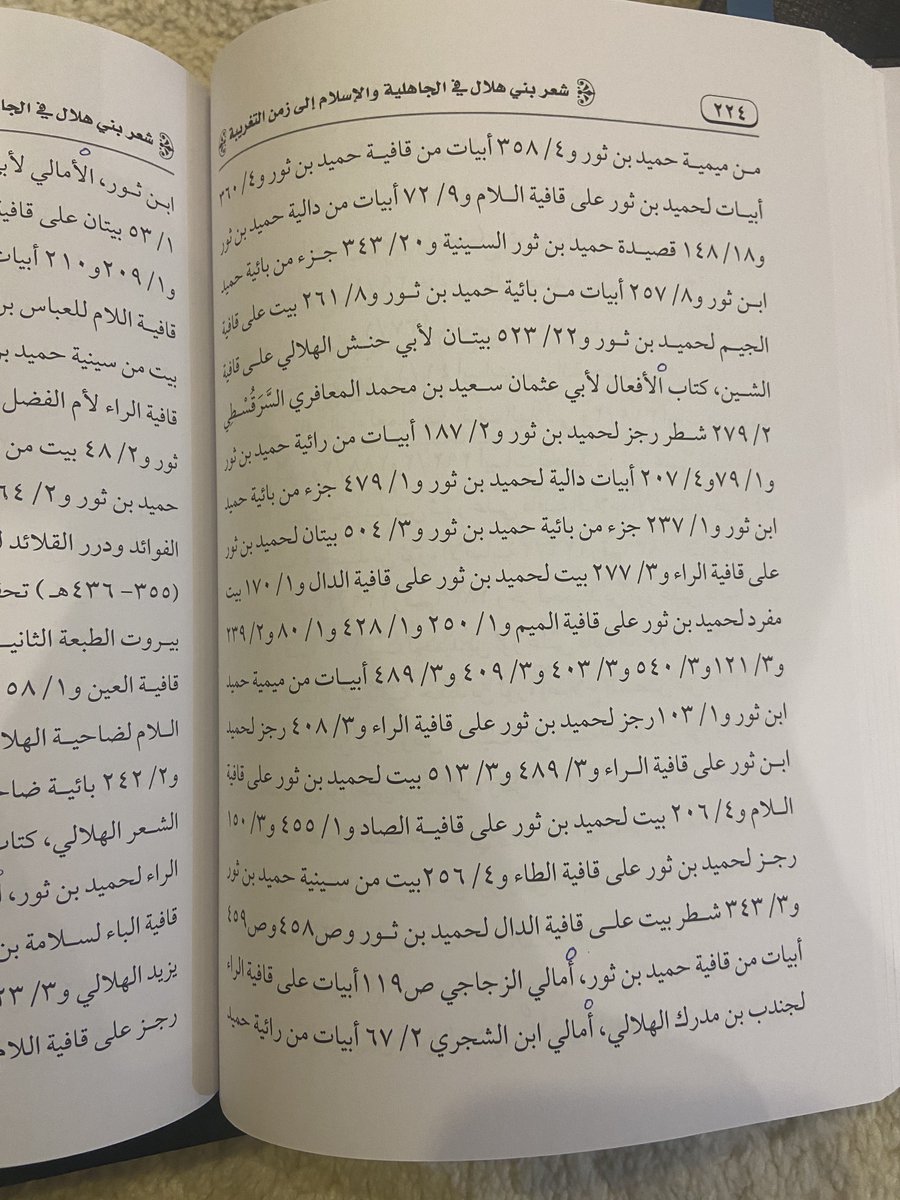 ٢٢٤
شعر بني هلال في الجاهلية والإسلام إلى زمن التغريبة
من ميمية حميد بن ثور و٤/ ٣٥٨ أبيات من قافية حميد بن ثور و٤/ ٣٦٠
أبيات لحميد بن ثور على قافية اللام و٩/ ٧٢ أبيات من دالية حميد بن ثور
و١٨/ ١٤٨ قصيدة حميد بن ثور السينية و٢٠/ ٣٤٣ جزء من بائية حميد
ابن ثور و٨/ ٢٥٧ أبيات من بائية حميد بن ثور و٨/ ٢٦١ بيت على قافية
الجيم لحميد بن ثور و٢٢/ ٥٢٣ بيتان لأبي حنش الهلالي على قافية
الشين، كتاب الأفعال لأبي عثمان سعيد بن محمد المعافري السَّرَقُسْطِي
٢/ ٢٧٩ شطر رجز لحميد بن ثور و٢/ ١٨٧ أبيات من رائية حميد بن ثور
و١/ ٧٩و٤/ ٢٠٧ أبيات دالية لحميد بن ثور و١/ ٤٧٩ جزء من بائية حميد
ابن ثور و١/ ٢٣٧ جزء من بائية حميد بن ثور و٣/ ٥٠٤ بيتان لحميد بن ثور
على قافية الراء و٣/ ٢٧٧ بيت لحميد بن ثور على قافية الدال و١/ ١٧٠ بيت
مفرد لحميد بن ثور على قافية الميم و١/ ٢٥٠ و١/ ٤٢٨ و١/ ٨٠ و٢/ ٢٣٩
و٣/ ١٢١و٣/ ٥٤٠ و٣/ ٤٠٣ و٣/ ٤٠٩ و٣/ ٤٨٩ أبيات من ميمية حميد
ابن ثور و١/ ١٠٣ رجز لحميد بن ثور على قافية الراء و٣/ ٤٠٨ رجز لحميد
ابن ثور على قافية الراء و٣/ ٤٨٩ و٣/ ٥١٣ بيت لحميد بن ثور على قافية
اللام و٤/ ٢٠٦ بيت لحميد بن ثور على قافية الصاد و١/ ٤٥٥ و٣/ ١٥٠
رجز لحميد بن ثور على قافية الطاء و٤/ ٢٥٦ بيت من سينية حميد بن ثور
و٣/ ٣٤٣ شطر بيت على قافية الدال لحميد بن ثور وص٤٥٨ وص٤٥٩
أبيات من قافية حميد بن ثور، أمالي الزجاجي ص١١٩ أبيات على قافية الراء
لجندب بن مدرك الهلالي، أمالي ابن الشجري ٢/ ٦٧ أبيات من رائية حميد
شعر بني هلال في
ابن ثور، الأمالي
١/ ٥٣ بيتان على
و١/ ٢٠٩و ٢١٠ أبيات
قافية اللام للعباس
بيت من سينية حميد
قافية الراء لأم الفضل
ثور و٢/ ٤٨ بيت من
حميد بن ثور و٢/
الفوائد ودرر القلائد
(٣٥٥- ٤٣٦هـ)
بيروت الطبعة
قافية العين و١/
اللام لضاحية
و٢/ ٢٤٢ بائية
الشعر الهلالي،
الراء لحميد بن ثور،
قافية الباء لسلامة
يزيد الهلالي و٣/
رجز على قافية